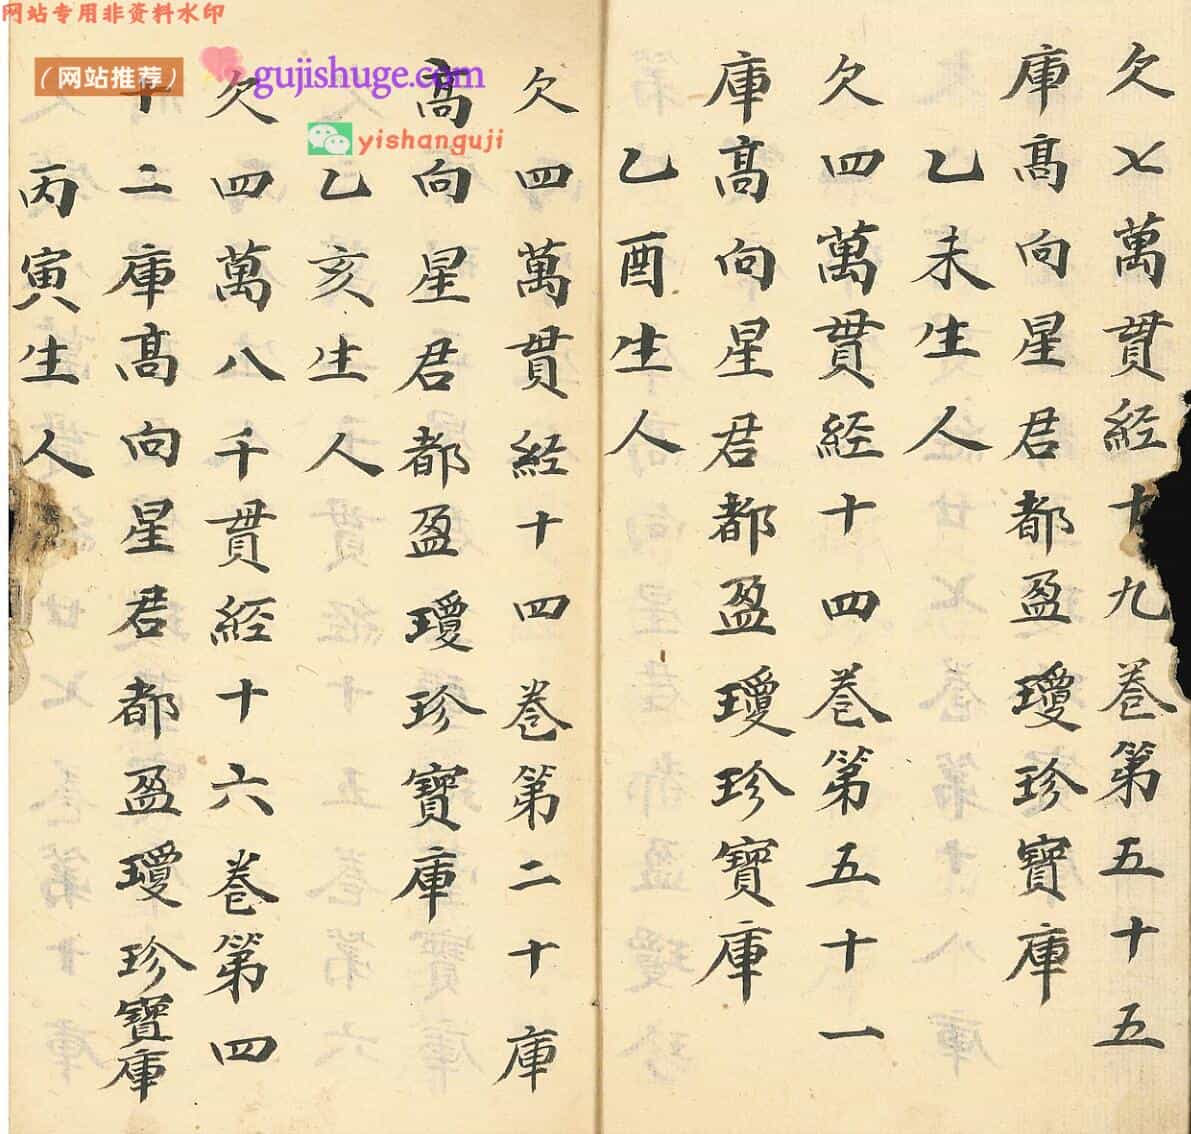 网站专用非资料水印
（网站推荐）
gujishuge.com
yishanguji
欠七萬貫經十九卷第五十五
庫高向星君都盈瓊珍寶庫
乙未生人
欠四萬貫經十四卷第五十一
庫高向星君都盈瓊珍寶庫
乙酉生人
欠四萬貫經十四卷第二十庫
高向星君都盈瓊珍寶庫
乙亥生人
欠四萬八千貫經十六卷第四
十二庫高向星君都盈瓊珍寶庫
丙寅生人